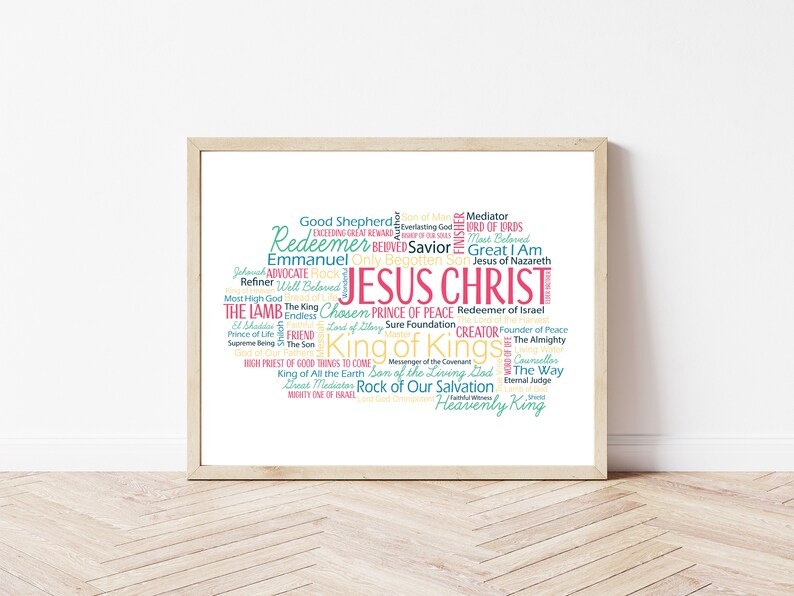 Good Shepherd
Author
Son of Man
FINISHER
Mediator
EXCEEDING GREAT REWARD
Everlasting God
LORD OF LORDS
Redeemer
BISHOP OF OUR SOULS
Most Beloved
BELOVED
Savior
Great I Am
Emmanuel
Only Begotten Son
Jesus of Nazareth
Jehovah
ADVOCATE
Rock
Wonderful
JESUS CHRIST
ELDER BROTHER
Refiner
Well Beloved
King of Heaven
Most High God
Bread of Life
THE LAMB
The King
Chosen
PRINCE OF PEACE
Redeemer of Israel
Endless
The Lord of the Harvest
El Shaddai
Shiloh
Faithful
Messiah
Lord of Glory
Sure Foundation
CREATOR
Founder of Peace
Prince of Life
FRIEND
Master
WORD OF LIFE
The Almighty
Supreme Being
The Son
King of Kings
Living Water
God of Our Fathers
Counsellor
HIGH PRIEST OF GOOD THINGS TO COME
Messenger of the Covenant
The Way
King of All the Earth
Son of the Living God
True Vine
Eternal Judge
Great Mediator
Rock of Our Salvation
Lamb of God
MIGHTY ONE OF ISRAEL
Lord God Omnipotent
Faithful Witness
Shield
Heavenly King